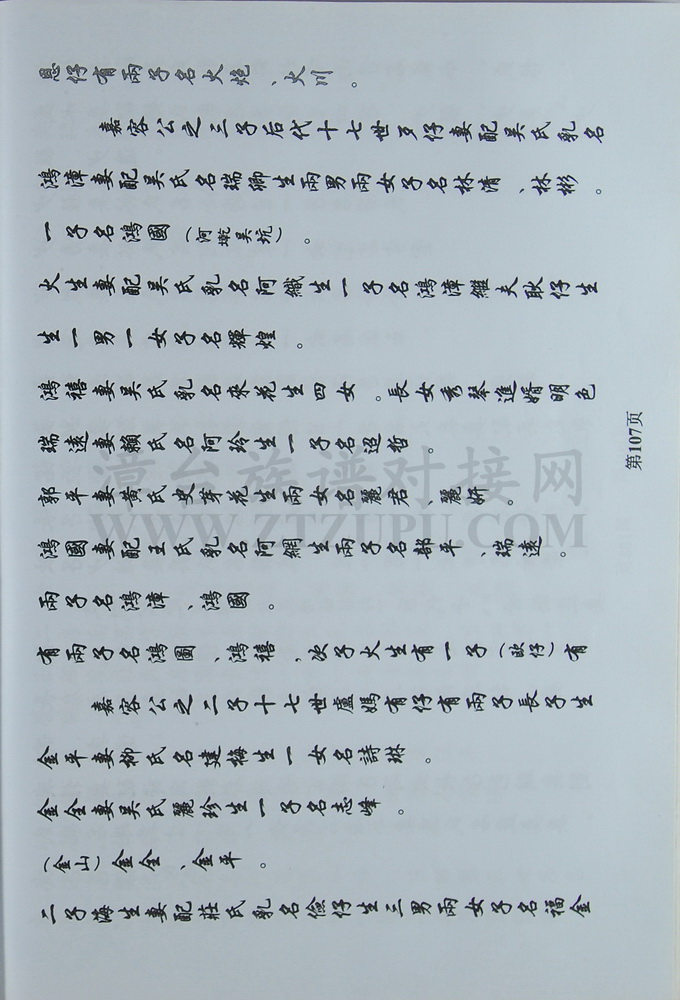 二子海生妻配莊氏乳名儉仔生三男兩女子名福金
(金山)金全、金平。
金全妻吳氏麗珍生一子名志峰。
金平妻柳氏名建梅生一女名詩琳。
嘉容公之二子十七世盧媽有仔有兩子長子生
有兩子名鴻圖、鴻禧,次子火生有一子(歐仔)有
兩子名鴻漳、鴻國。
鴻國妻配王氏乳名阿網生兩子名郭平、瑞遠。
郭平妻黃氏史芽花生兩女名麗君、麗妍。
瑞遠妻賴氏名阿玲生一子名迢哲。
鴻禧妻吳氏乳名來花生四女。長女秀琴進婿明色
生一男一女子名輝煌。
火生妻配吳氏乳名阿鐵生一子名鴻漳繼夫耿仔生
一子名鴻國(河墘吳坑)。
鴻漳妻配吳氏名瑞卿生兩男兩女子名林清、林彬。
嘉容公之三子后代十七世歹仔妻配吳氏乳名
恩仔有兩子名火炮、火川。
第107页
漳台族谱对接网
WWW.ZTZUPU.COM